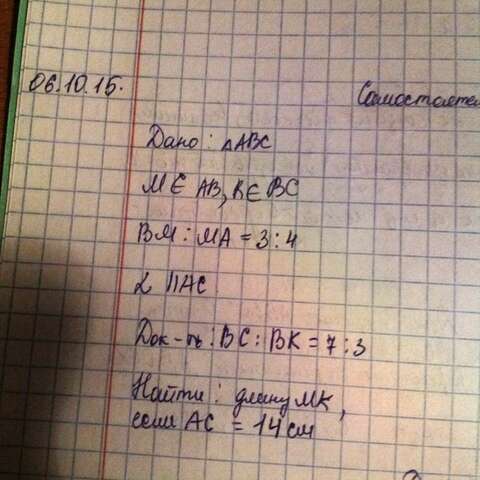 06.10.15.
Самостоятел
Дано: △ABC
M ∈ AB, K ∈ BC
BM : MA = 3 : 4
α || AC
Док-ть: BC : BK = 7 : 3
Найти: длину MK,
если AC = 14 см